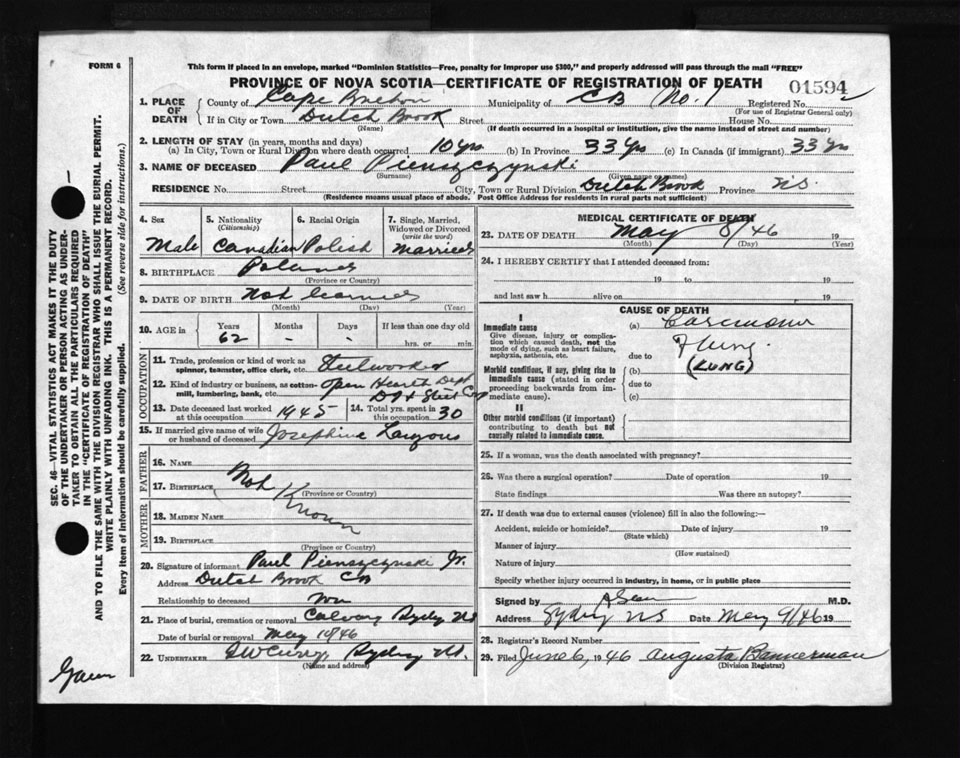 FORM 6
This form if placed in an envelope, marked "Dominion Statistics—Free, penalty for improper use $300," and properly addressed will pass through the mail "FREE"
PROVINCE OF NOVA SCOTIA—CERTIFICATE OF REGISTRATION OF DEATH
01594
1. PLACE OF DEATH County of Cape Breton Municipality of CB No. 1 Registered No.
(For use of Registrar General only)
If in City or Town Dutch Brook Street House No.
(Name) (If death occurred in a hospital or institution, give the name instead of street and number)
2. LENGTH OF STAY (in years, months and days)
(a) In City, Town or Rural Division where death occurred 10 yrs (b) In Province 33 Yrs (c) In Canada (if immigrant) 33 Yrs
3. NAME OF DECEASED Paul Pienszczynski
(Surname) (Given name or names)
RESIDENCE No. Street City, Town or Rural Division Dutch Brook Province N.S.
(Residence means usual place of abode. Post Office Address for residents in rural parts not sufficient)
4. Sex Male
5. Nationality (Citizenship) Canadian
6. Racial Origin Polish
7. Single, Married, Widowed or Divorced (write the word) Married
8. BIRTHPLACE Poland
(Province or Country)
9. DATE OF BIRTH Not learned
(Month) (Day) (Year)
10. AGE in Years Months Days If less than one day old
62 - - hrs. or min.
OCCUPATION
11. Trade, profession or kind of work as spinner, teamster, office clerk, etc. Steelworker
12. Kind of industry or business, as cotton-mill, lumbering, bank, etc. Open Hearth Dept
Steel
13. Date deceased last worked at this occupation 1945 14. Total yrs. spent in this occupation 30
15. If married give name of wife or husband of deceased Josephine
FATHER
16. NAME
17. BIRTHPLACE Not Known
(Province or Country)
MOTHER
18. MAIDEN NAME
19. BIRTHPLACE
(Province or Country)
20. Signature of informant Paul Pienszczynski Jr.
Address Dutch Brook CB
Relationship to deceased Son
21. Place of burial, cremation or removal Calvary Sydney NS
Date of burial or removal May 10/46
22. UNDERTAKER Sydney NS.
(Name and address)
MEDICAL CERTIFICATE OF DEATH
23. DATE OF DEATH May 8/46 19
(Month) (Day) (Year)
24. I HEREBY CERTIFY that I attended deceased from:
19 to 19
and last saw h alive on 19
CAUSE OF DEATH
I
Immediate cause
Give disease, injury or complication which caused death, not the mode of dying, such as heart failure, asphyxia, asthenia, etc.
(a) Carcinoma
due to of lung.
Morbid conditions, if any, giving rise to immediate cause (stated in order proceeding backwards from immediate cause).
(b) (LUNG)
due to
(c)
II
Other morbid conditions (if important) contributing to death but not causally related to immediate cause.
25. If a woman, was the death associated with pregnancy?
26. Was there a surgical operation? Date of operation 19
State findings Was there an autopsy?
27. If death was due to external causes (violence) fill in also the following:—
Accident, suicide or homicide? Date of injury 19
(State which)
Manner of injury
(How sustained)
Nature of injury
Specify whether injury occurred in industry, in home, or in public place
Signed by M.D.
Address Sydney NS Date May 9/46 19
28. Registrar's Record Number
29. Filed June 6, 1946 Augusta Bannerman
(Division Registrar)
SEC. 46—VITAL STATISTICS ACT MAKES IT THE DUTY
OF THE UNDERTAKER OR PERSON ACTING AS UNDER-
TAKER TO OBTAIN ALL THE PARTICULARS REQUIRED
IN THE "CERTIFICATE OF REGISTRATION OF DEATH"
AND TO FILE THE SAME WITH THE DIVISION REGISTRAR WHO SHALL ISSUE THE BURIAL PERMIT.
WRITE PLAINLY WITH UNFADING INK. THIS IS A PERMANENT RECORD.
Every item of information should be carefully supplied. (See reverse side for instructions.)